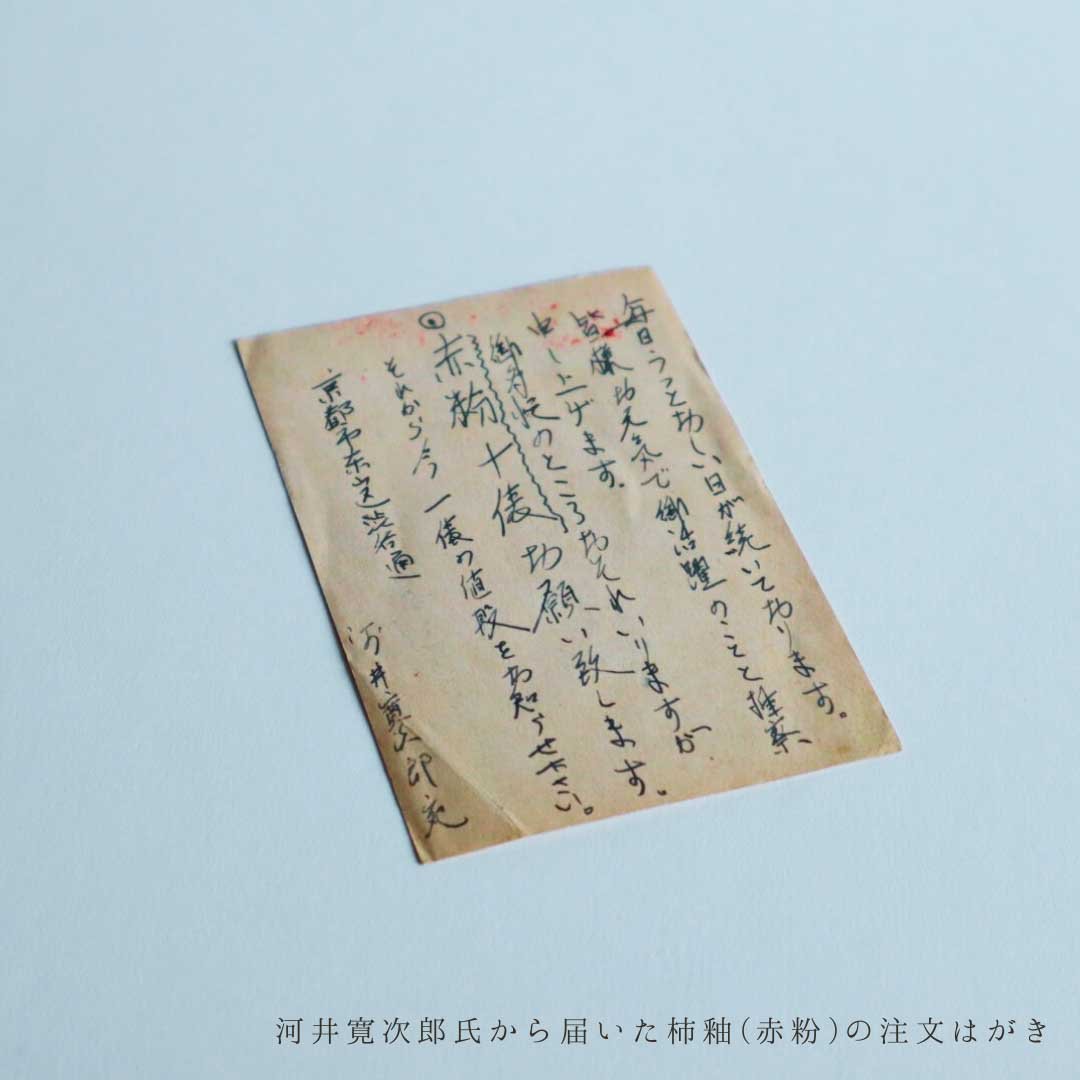 毎日うっとおしい日が続いております。
皆様お元気で御活躍のことと推察
申し上げます。
御多忙のところおそれいりますが
赤粉十俵お願い致します。
それから今一俵の値段をお知らせ下さい。
京都市東山区渋谷通
河井寛次郎
河井寛次郎氏から届いた柿釉(赤粉)の注文はがき